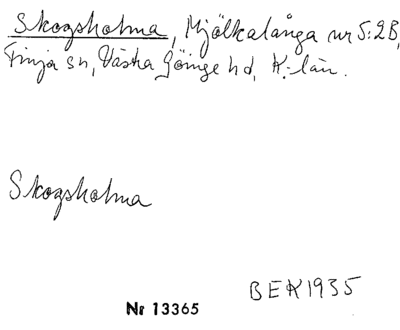 Skogsholma, Mjölkalånga nr 5:2B,
Finja sn, Västra Göinge hd, K.-län.
Skogsholma
BEK1935
Nr 13365